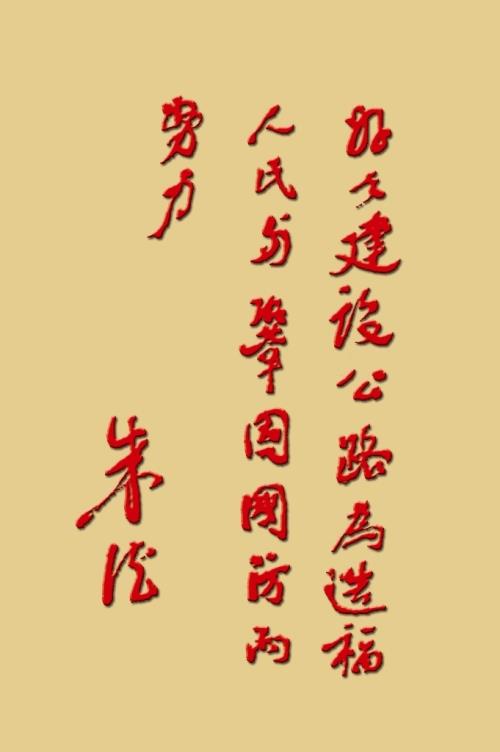 努力建設公路為造福
人民與鞏固國防而
努力
朱德